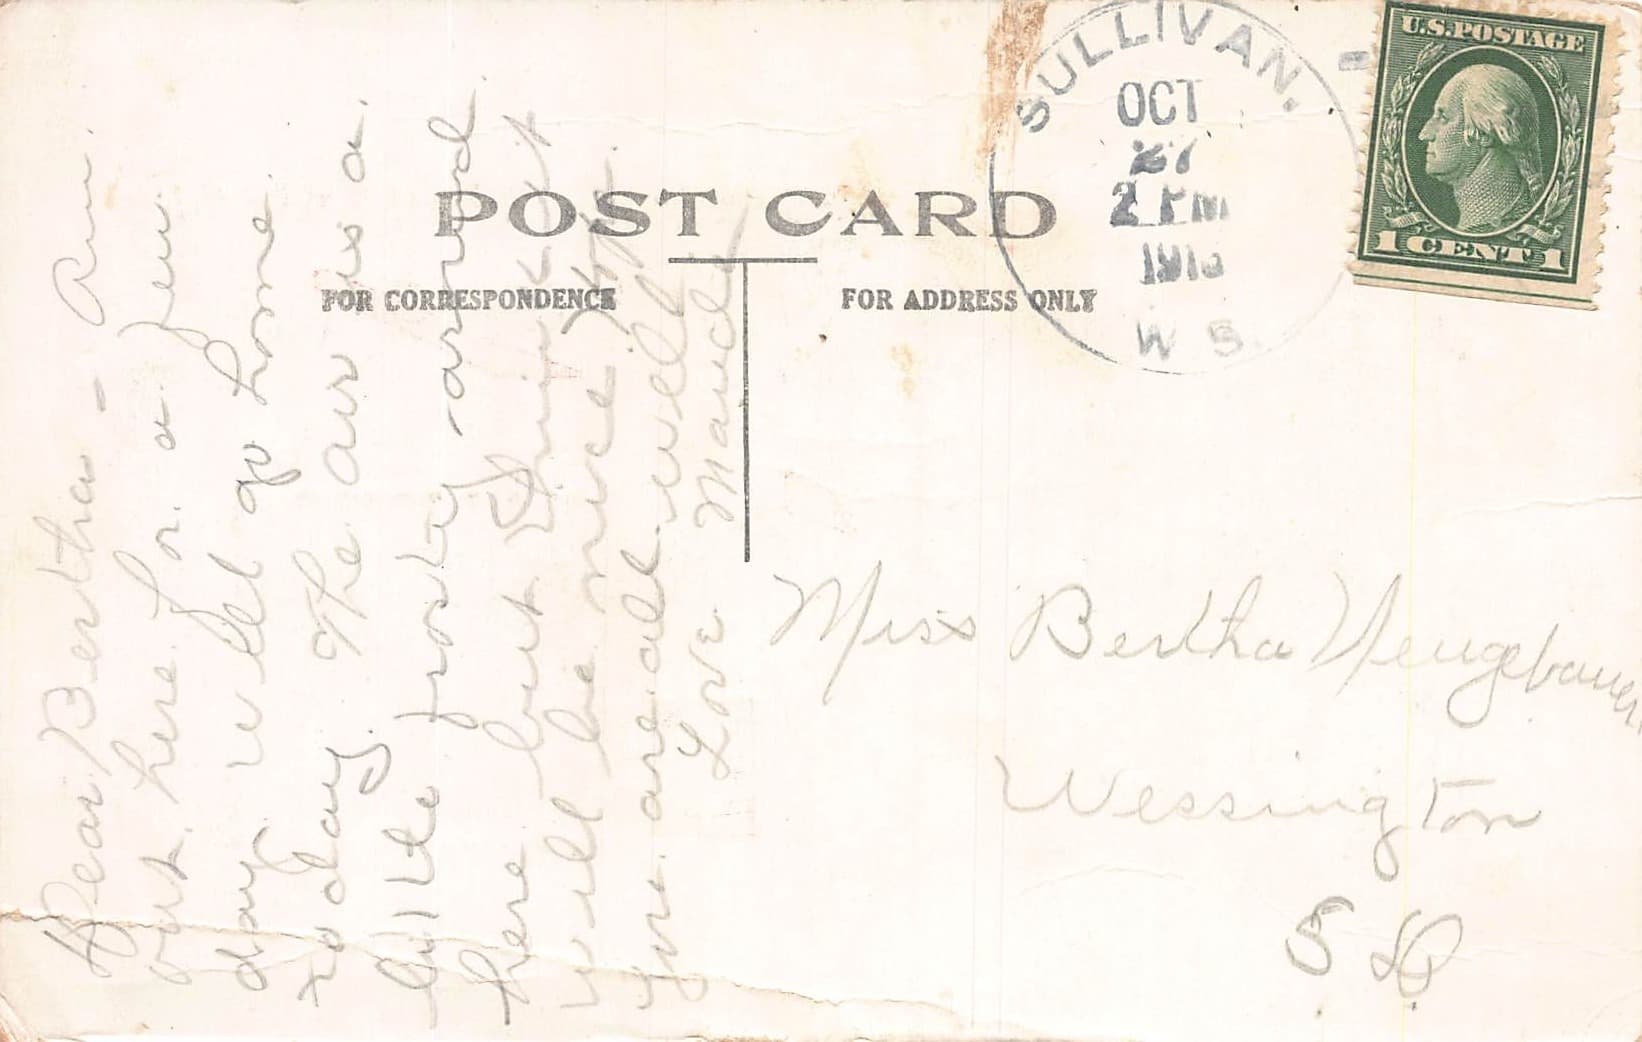 POST CARD
FOR CORRESPONDENCE
FOR ADDRESS ONLY
SULLIVAN.
OCT
27
2 PM
191
W S.
U.S. POSTAGE
1 CENT 1
Dear Bertha - Am
out here for a few
day will go home
today. The air is a.
little frosty around
here but think it
will be nice. Hope
you are all well
Love Maude
Miss Bertha Neugebauer
Wessington
S D